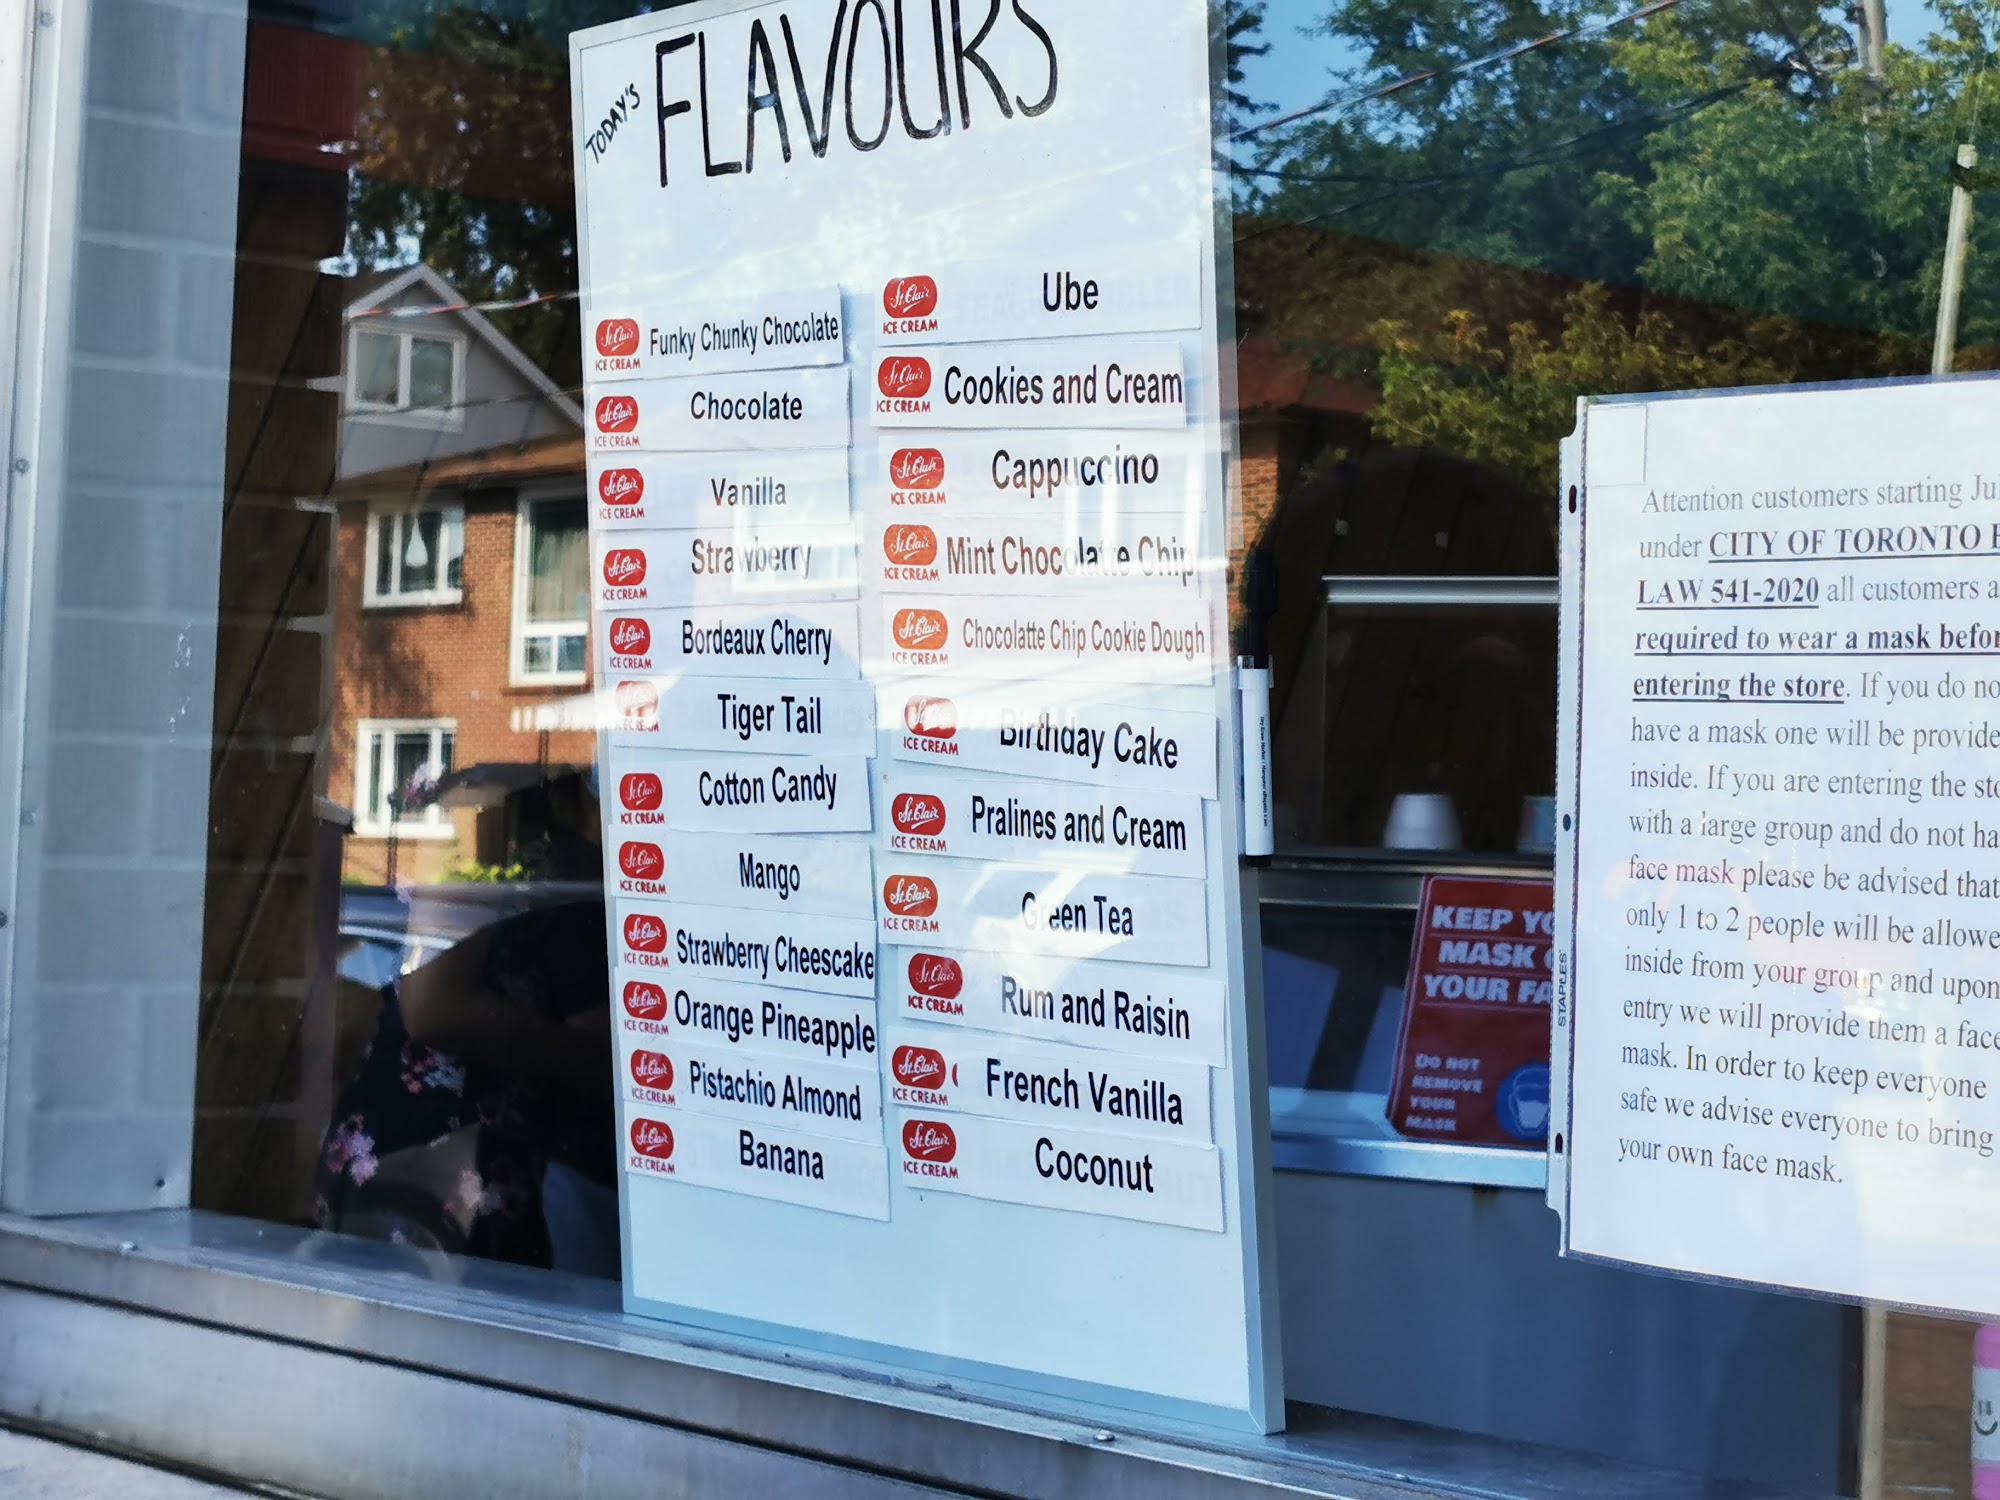 TODAY'S
FLAVOURS
St. Clair ICE CREAM Funky Chunky Chocolate
St. Clair ICE CREAM Chocolate
St. Clair ICE CREAM Vanilla
St. Clair ICE CREAM Strawberry
St. Clair ICE CREAM Bordeaux Cherry
ICE CREAM Tiger Tail
St. Clair ICE CREAM Cotton Candy
St. Clair ICE CREAM Mango
St. Clair ICE CREAM Strawberry Cheescake
St. Clair ICE CREAM Orange Pineapple
St. Clair ICE CREAM Pistachio Almond
St. Clair ICE CREAM Banana
St. Clair ICE CREAM Ube
St. Clair ICE CREAM Cookies and Cream
St. Clair ICE CREAM Cappuccino
St. Clair ICE CREAM Mint Chocolatte Chip
St. Clair ICE CREAM Chocolatte Chip Cookie Dough
St. Clair ICE CREAM Birthday Cake
St. Clair ICE CREAM Pralines and Cream
St. Clair ICE CREAM Green Tea
St. Clair ICE CREAM Rum and Raisin
St. Clair ICE CREAM French Vanilla
St. Clair ICE CREAM Coconut
KEEP
MASK
YOUR
DO NOT
REMOVE
YOUR
MASK
STAPLES
Attention customers starting
under CITY OF TORONTO
LAW 541-2020 all customers
required to wear a mask
entering the store. If you do
have a mask one will be
inside. If you are entering the
with a large group and do not
face mask please be advised that
only 1 to 2 people will be
inside from your group and upon
entry we will provide them a face
mask. In order to keep everyone
safe we advise everyone to bring
your own face mask.